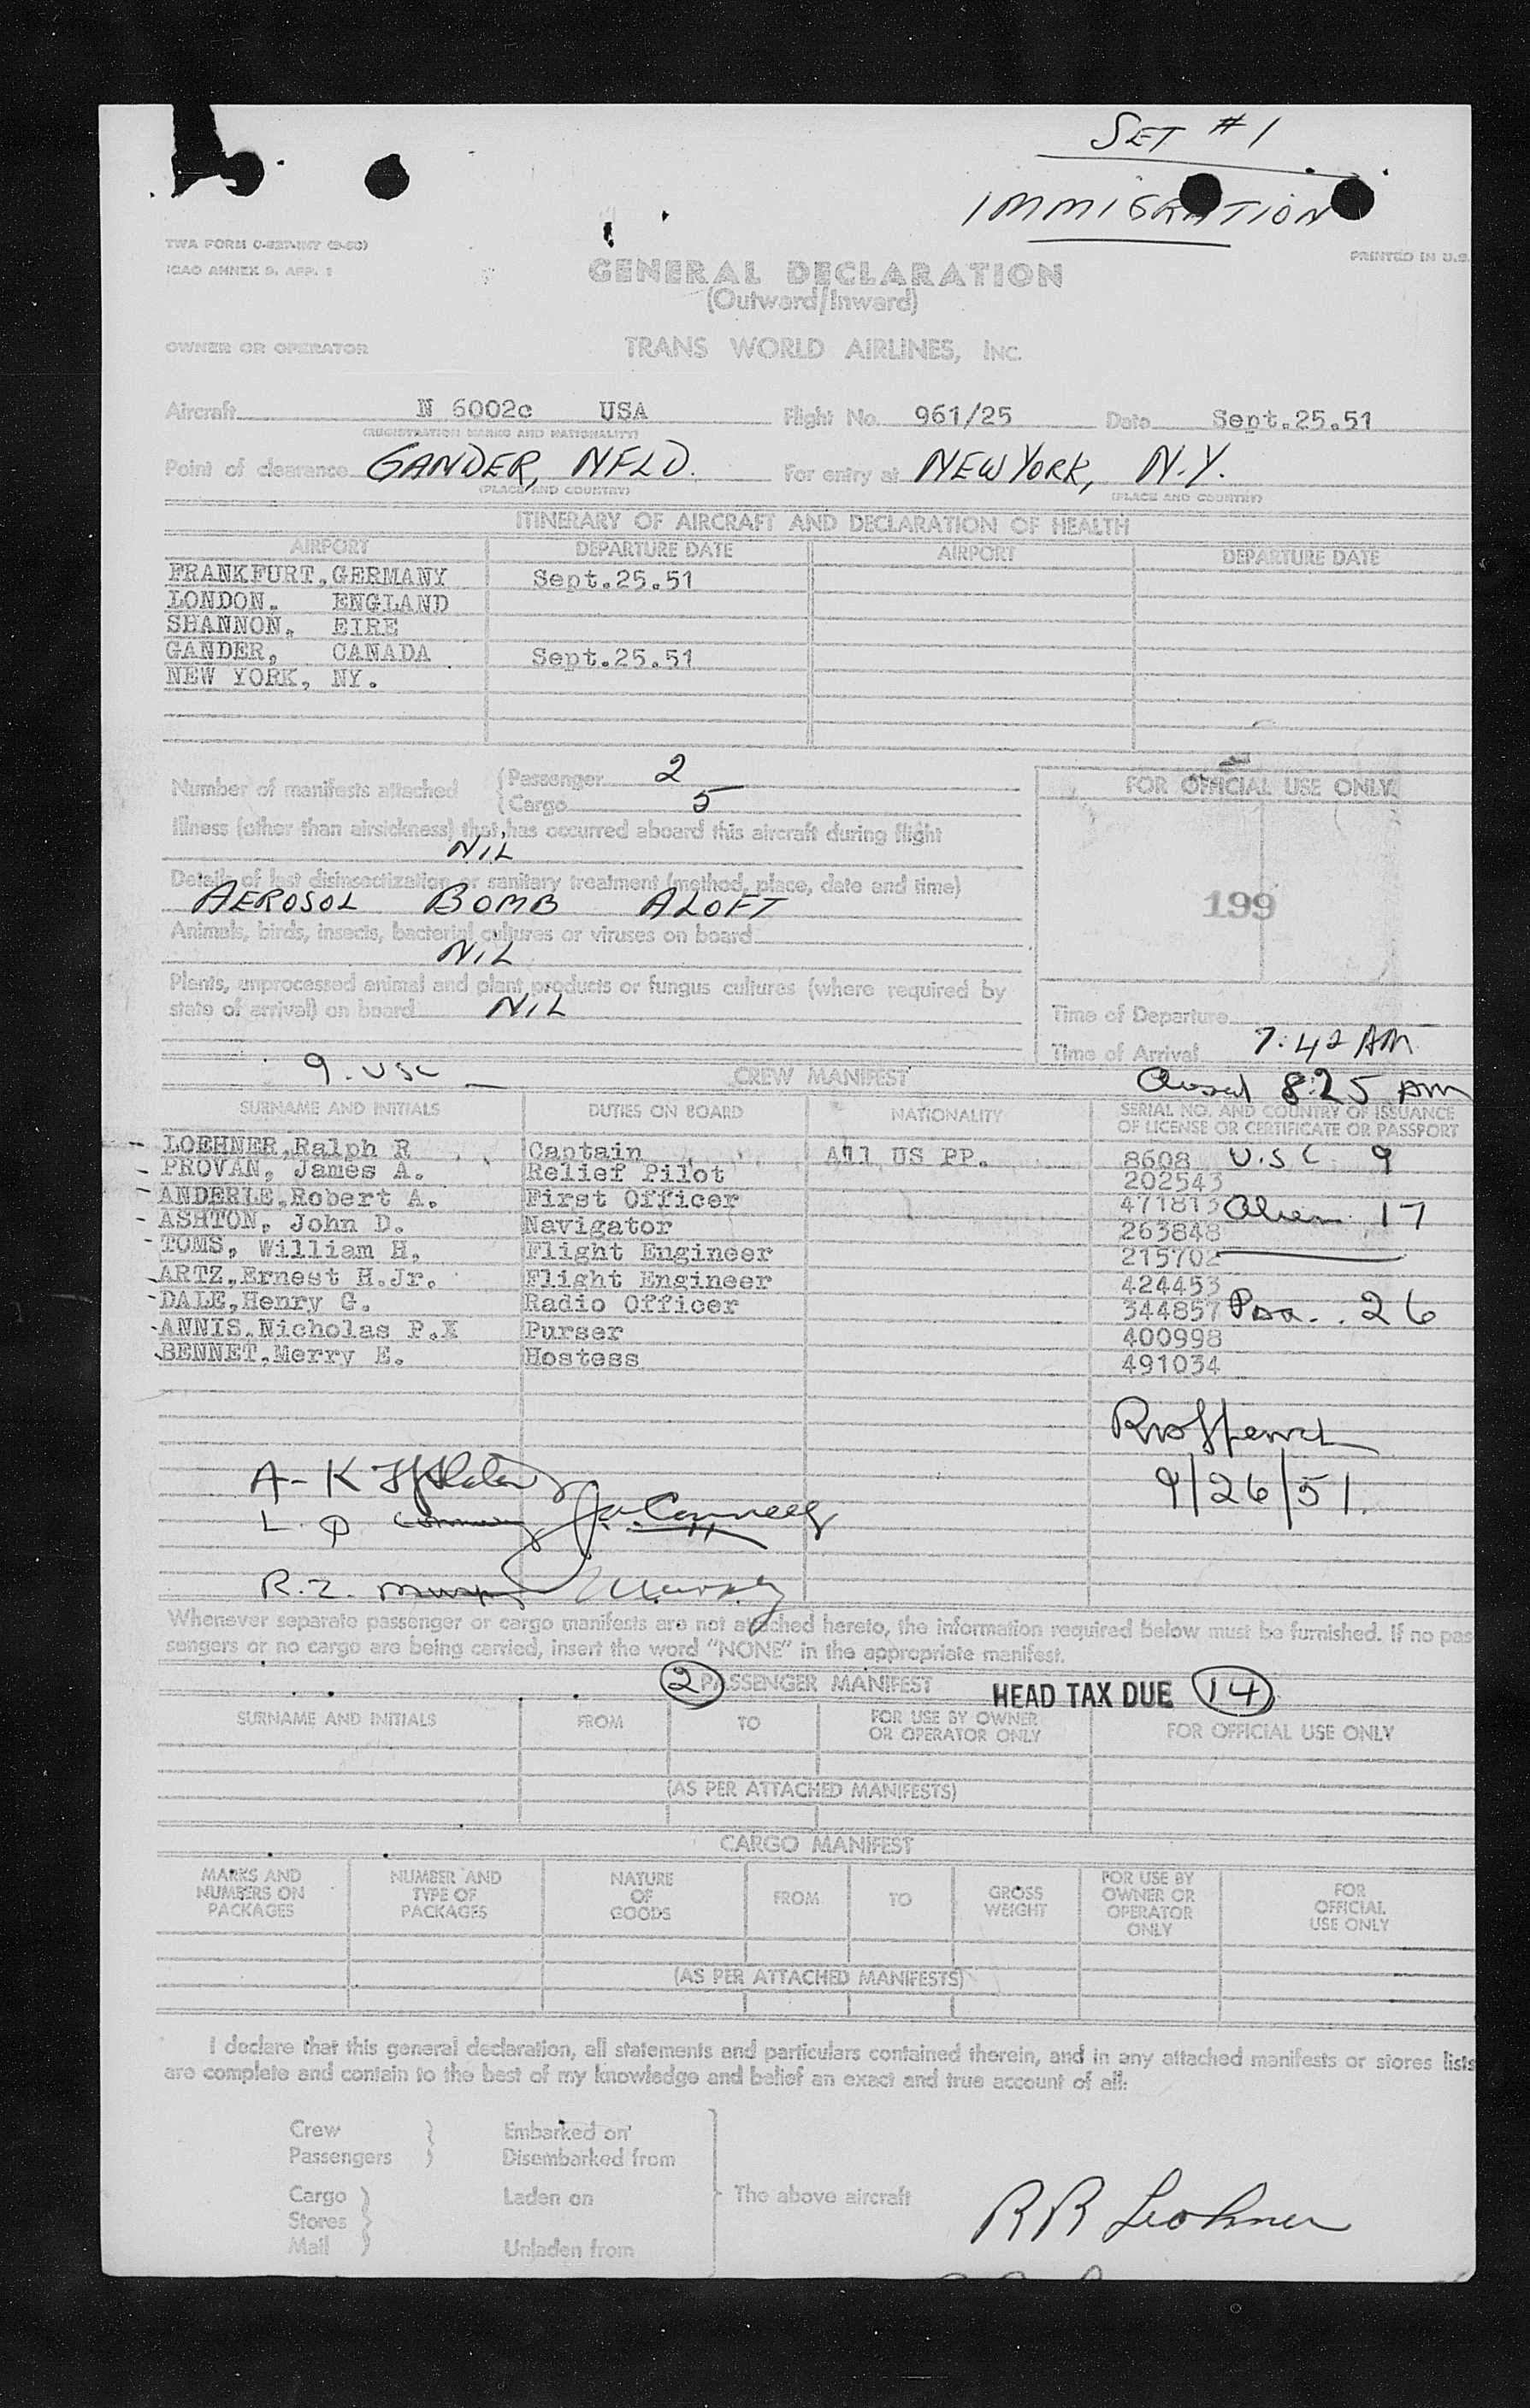 SET #1
IMMIGRATION
ICAO ANNEX 9. APP. 1
PRINTED IN U.S.
GENERAL DECLARATION
(Outward/Inward)
OWNER OR OPERATOR TRANS WORLD AIRLINES, INC.
Aircraft N 6002c USA Flight No. 961/25 Date Sept.25.51
(REGISTRATION MARKS AND NATIONALITY)
Point of clearance GANDER, NFLD. For entry at NEW YORK, N.Y.
(PLACE AND COUNTRY) (PLACE AND COUNTRY)
ITINERARY OF AIRCRAFT AND DECLARATION OF HEALTH
AIRPORT DEPARTURE DATE AIRPORT DEPARTURE DATE
FRANKFURT,GERMANY Sept.25.51
LONDON. ENGLAND
SHANNON, EIRE
GANDER, CANADA Sept.25.51
NEW YORK, NY.
Number of manifests attached (Passenger 2
(Cargo 5
FOR OFFICIAL USE ONLY
Illness (other than airsickness) that has occurred aboard this aircraft during flight
NIL
Details of last disinsectization or sanitary treatment (method, place, date and time)
AEROSOL BOMB ALOFT
199
Animals, birds, insects, bacterial cultures or viruses on board
NIL
Plants, unprocessed animal and plant products or fungus cultures (where required by
state of arrival) on board NIL
Time of Departure
Time of Arrival 7:42 AM
9. USC CREW MANIFEST Closed 8:25 AM
SURNAME AND INITIALS DUTIES ON BOARD NATIONALITY SERIAL NO. AND COUNTRY OF ISSUANCE
OF LICENSE OR CERTIFICATE OR PASSPORT
LOEHNER,Ralph R Captain All US PP. 8608 U.S C 9
PROVAN, James A. Relief Pilot 202543
ANDERLE,Robert A. First Officer 471813 Alien 17
ASHTON, John D. Navigator 263848
TOMS, William H. Flight Engineer 215702
ARTZ,Ernest H.Jr. Flight Engineer 424453
DALE,Henry G. Radio Officer 344857 Pax.. 26
ANNIS,Nicholas P.X Purser 400998
BENNET,Merry E. Hostess 491034
9/26/51.
A-K
L. P
R.Z. Murphy
Whenever separate passenger or cargo manifests are not attached hereto, the information required below must be furnished. If no pas
sengers or no cargo are being carried, insert the word "NONE" in the appropriate manifest.
2 PASSENGER MANIFEST HEAD TAX DUE 14
SURNAME AND INITIALS FROM TO FOR USE BY OWNER
OR OPERATOR ONLY FOR OFFICIAL USE ONLY
(AS PER ATTACHED MANIFESTS)
CARGO MANIFEST
MARKS AND
NUMBERS ON
PACKAGES
NUMBER AND
TYPE OF
PACKAGES
NATURE
OF
GOODS
FROM
TO
GROSS
WEIGHT
FOR USE BY
OWNER OR
OPERATOR
ONLY
FOR
OFFICIAL
USE ONLY
(AS PER ATTACHED MANIFESTS)
I declare that this general declaration, all statements and particulars contained therein, and in any attached manifests or stores lists
are complete and contain to the best of my knowledge and belief an exact and true account of all:
Crew } Embarked on
Passengers } Disembarked from
Cargo } Laden on The above aircraft
Stores
Mail } Unladen from
RR Loehner